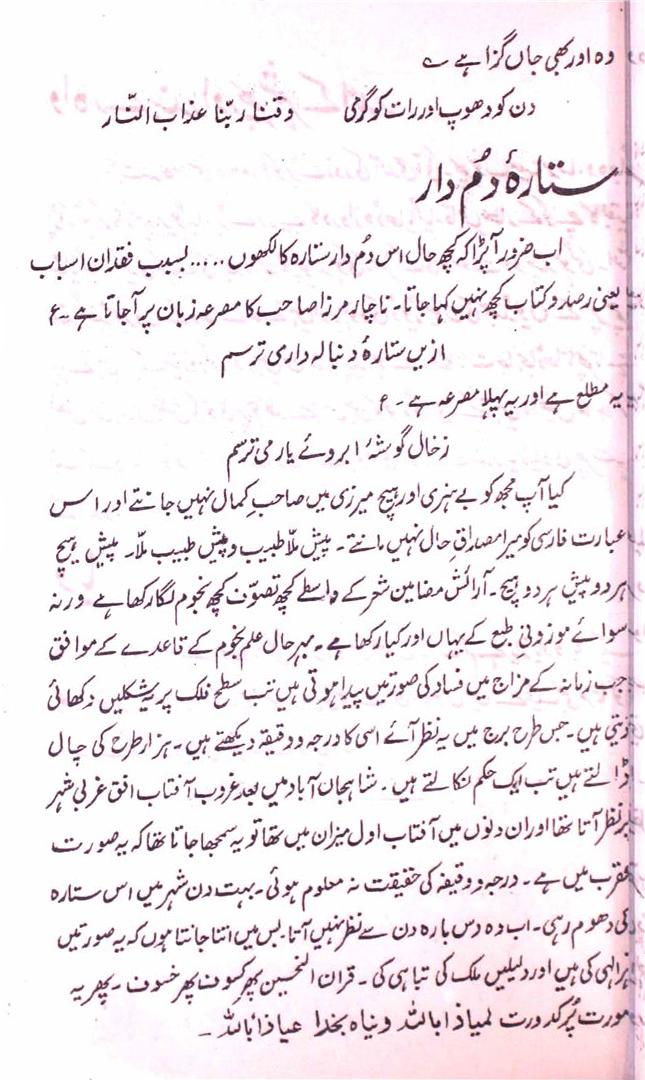 وہ اور بھی جاں گزا ہے ؎
دن کو دھوپ اور رات کو گرمی وقنا ربّنا عذاب النّار
ستارۂ دُم دار
اب ضرور آپڑا کہ کچھ حال اس دُم دار ستارہ کا لکھوں ..... بسبب فقدان اسباب
یعنی رصد و کتاب کچھ نہیں کہا جاتا۔ ناچار مرزا صاحب کا مصرعہ زبان پر آجاتا ہے ۔ ع
ازیں ستارۂ دنبالہ داری ترسم
یہ مطلع ہے اور یہ پہلا مصرعہ ہے ۔ ع
زخال گوشۂ ابروئے یار می ترسم
کیا آپ مجھ کو بے ہنری اور ہیچ میرزی میں صاحبِ کمال نہیں جانتے اور اس
عبارت فارسی کو میرا مصداقِ حال نہیں مانتے۔ پیش ملّا طبیب و پیش طبیب ملّا۔ پیش ہیچ
ہر دو پیش ہر دو ہیچ۔ آرائش مضامین شعر کے واسطے کچھ تصوّف کچھ نجوم لگا رکھا ہے ورنہ
سوائے موزونی طبع کے یہاں اور کیا رکھا ہے۔ بہر حال علم نجوم کے قاعدے کے موافق
جب زمانہ کے مزاج میں فساد کی صورتیں پیدا ہوتی ہیں تب سطح فلک پر یہ شکلیں دکھائی
دیتی ہیں۔ جس طرح برج میں یہ نظر آئے اسی کا درجہ و دقیقہ دیکھتے ہیں۔ ہزار طرح کی چال
ڈالتے ہیں تب ایک حکم نکالتے ہیں۔ شاہجہان آباد میں بعد غروب آفتاب افق غربی شہر
پر نظر آتا تھا اور ان دنوں میں آفتاب اول میزان میں تھا تو یہ سمجھا جاتا تھا کہ یہ صورت
عقرب میں ہے۔ درجہ و دقیقہ کی حقیقت نہ معلوم ہوئی۔ بہت دن شہر میں اس ستارہ
کی دھوم رہی۔ اب وہ دس بارہ دن سے نظر نہیں آتا۔ بس میں اتنا جانتا ہوں کہ یہ صورتیں
الٰہی کی ہیں اور دلیلیں ملک کی تباہی کی۔ قران النحسین پھر کسوف پھر خسوف۔ پھر یہ
صورت پُر کدورت لمیاذ اباللہ و پناہ بخدا عیاذ اباللہ ۔